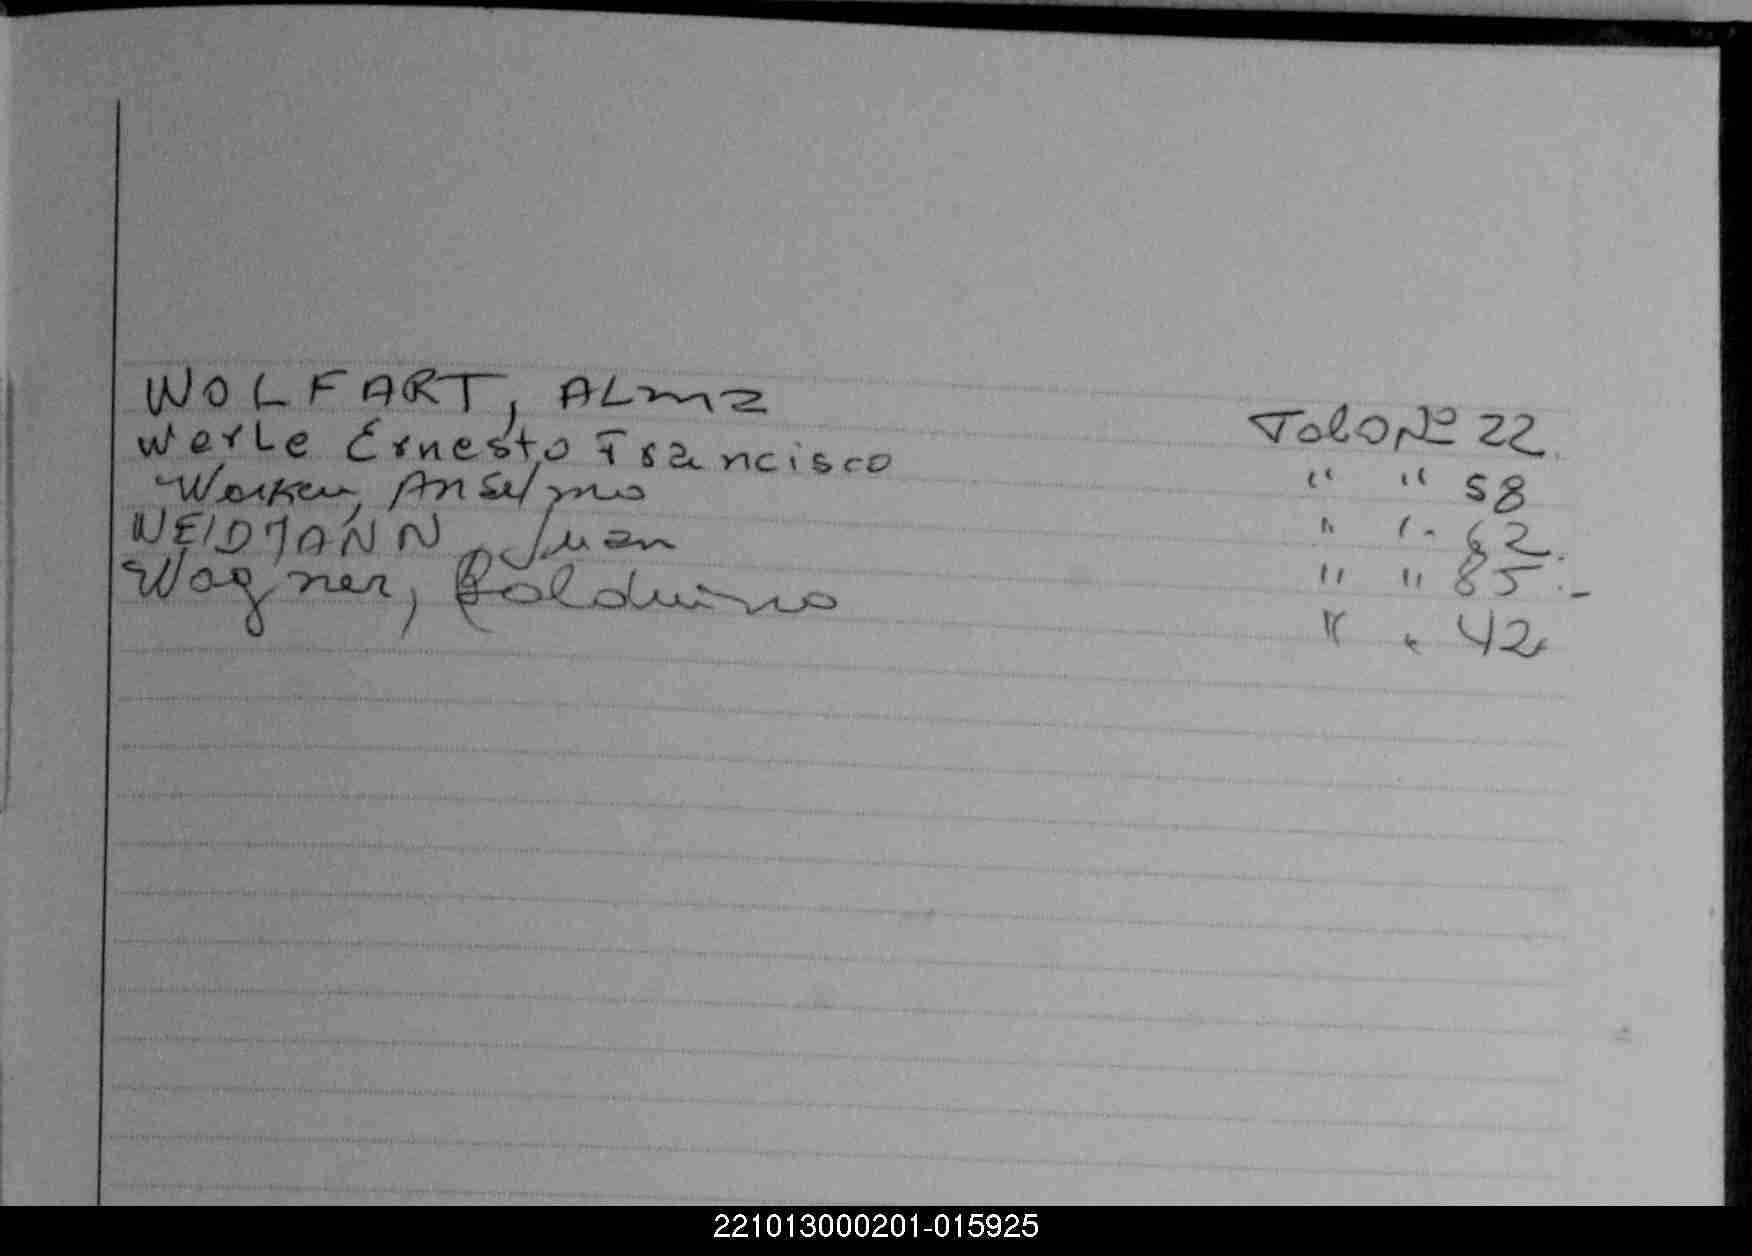 WOLFART, ALma Folo Nº 22
Werle Ernesto Francisco " " 58
Anselmo " " 62
WEIDMANN, Juan " " 85.-
Wagner, Balduino " " 42
221013000201-015925